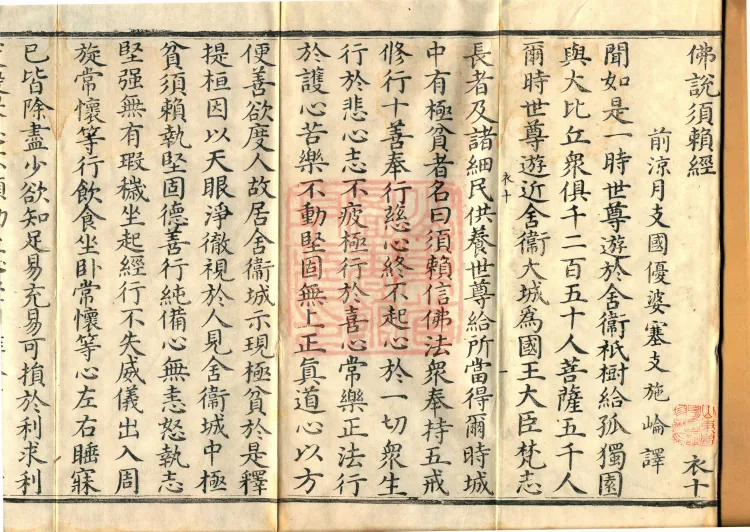 佛說須賴經
衣十
前涼月支國優婆塞支施崘譯
聞如是一時世尊遊於舍衞祇樹給孤獨園
與大比丘衆俱千二百五十人菩薩五千人
爾時世尊遊近舍衞大城爲國王大臣梵志
衣十
一
長者及諸細民供養世尊給所當得爾時城
中有極貧者名曰須賴信佛法衆奉持五戒
修行十善奉行慈心終不起心於一切衆生
行於悲心志不疲極行於喜心常樂正法行
於護心苦樂不動堅固無上正眞道心以方
便善欲度人故居舍衞城示現極貧於是釋
提桓因以天眼淨徹視於人見舍衞城中極
貧須賴執堅固德善行純備心無恚怒執志
堅强無有瑕穢坐起經行不失威儀出入周
旋常懷等行飲食坐臥常懷等心左右睡寐
已皆除盡少欲知足易充易可損於利求利